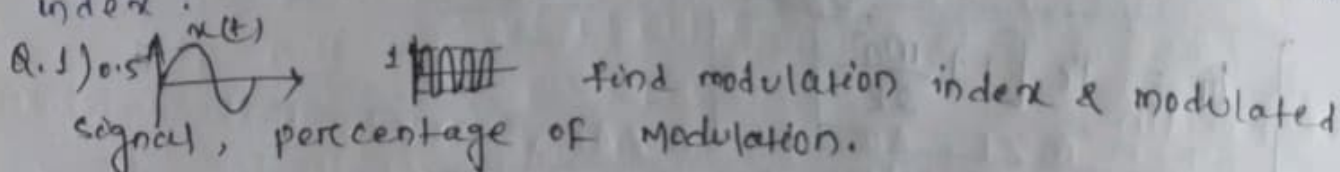 index.
x(t)
Q.1) 0.5 1 find modulation index & modulated
signal, percentage of Modulation.